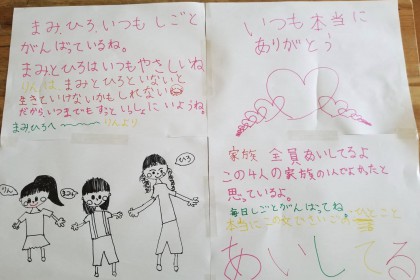 まみ、ひろ、いつも しごと
がんばっているね。
まみとひろはいつもやさしいね
りんは まみとひろといないと
生きといけないかもしれない
だから、いつまでもずっといっしょにいようね。
まみ、ひろへ 〜〜〜 りんより
いつも本当に
ありがとう
りん
まみ
ひろ
家族 全員あいしてるよ
この4人の家族の1人でよかったと
思っているよ。
毎日しごとがんばってね。
本当にこの文でさいごの ひとこと
あいしてる